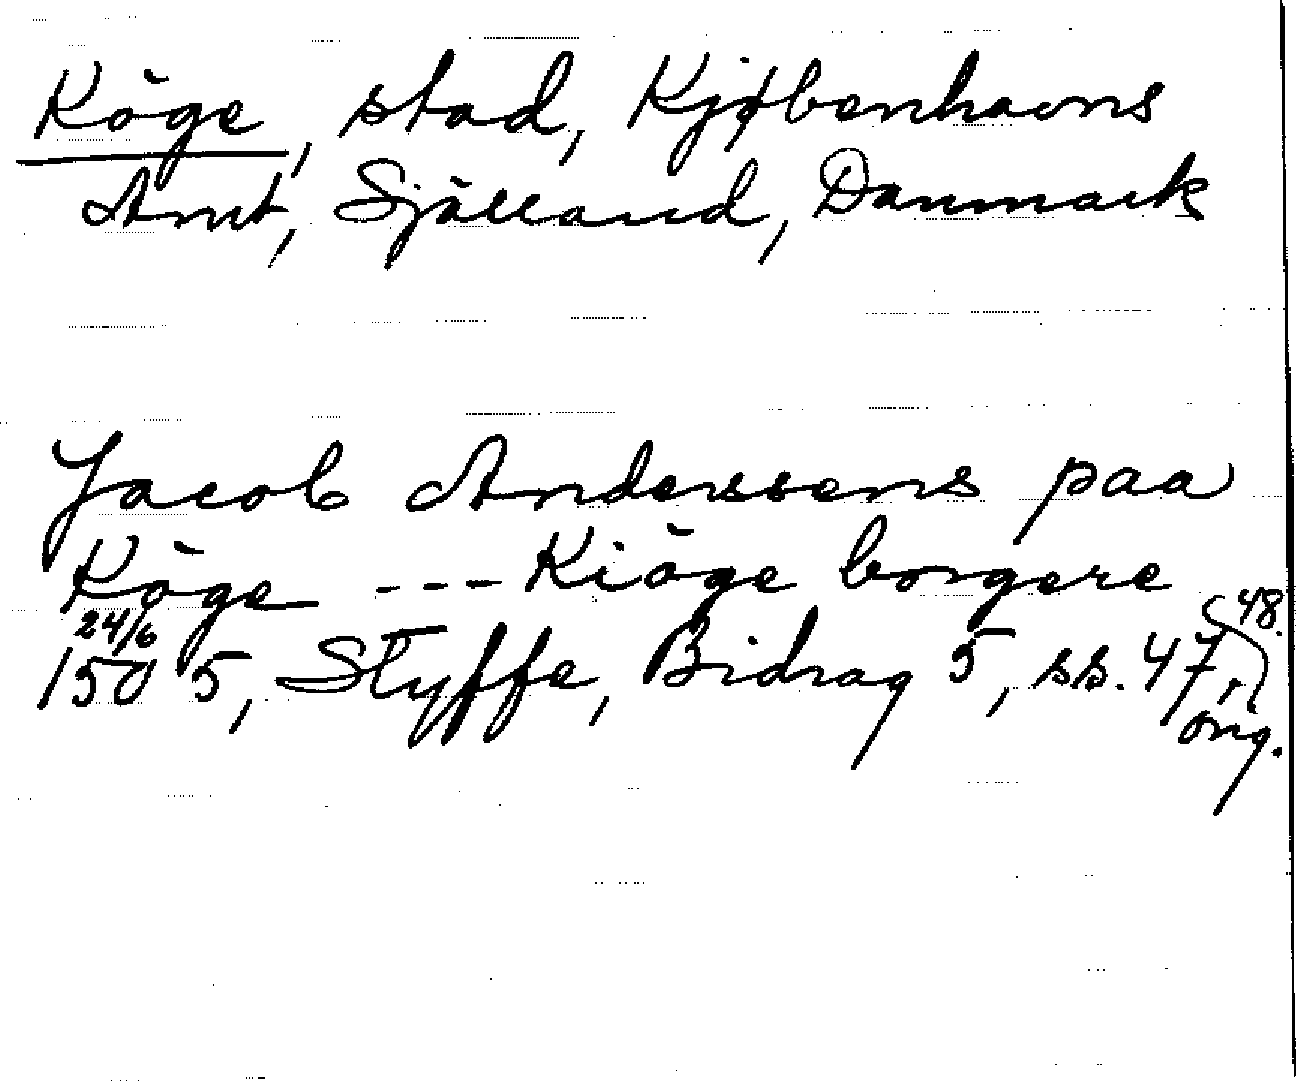 Köge, stad, Kjøbenhavns
Amt, Själland, Danmark
Jacob Anderssens paa
Köge --- Kiöge borgere
24/6 48.
1505, Styffe, Bidrag 5, ss. 47,
orig.